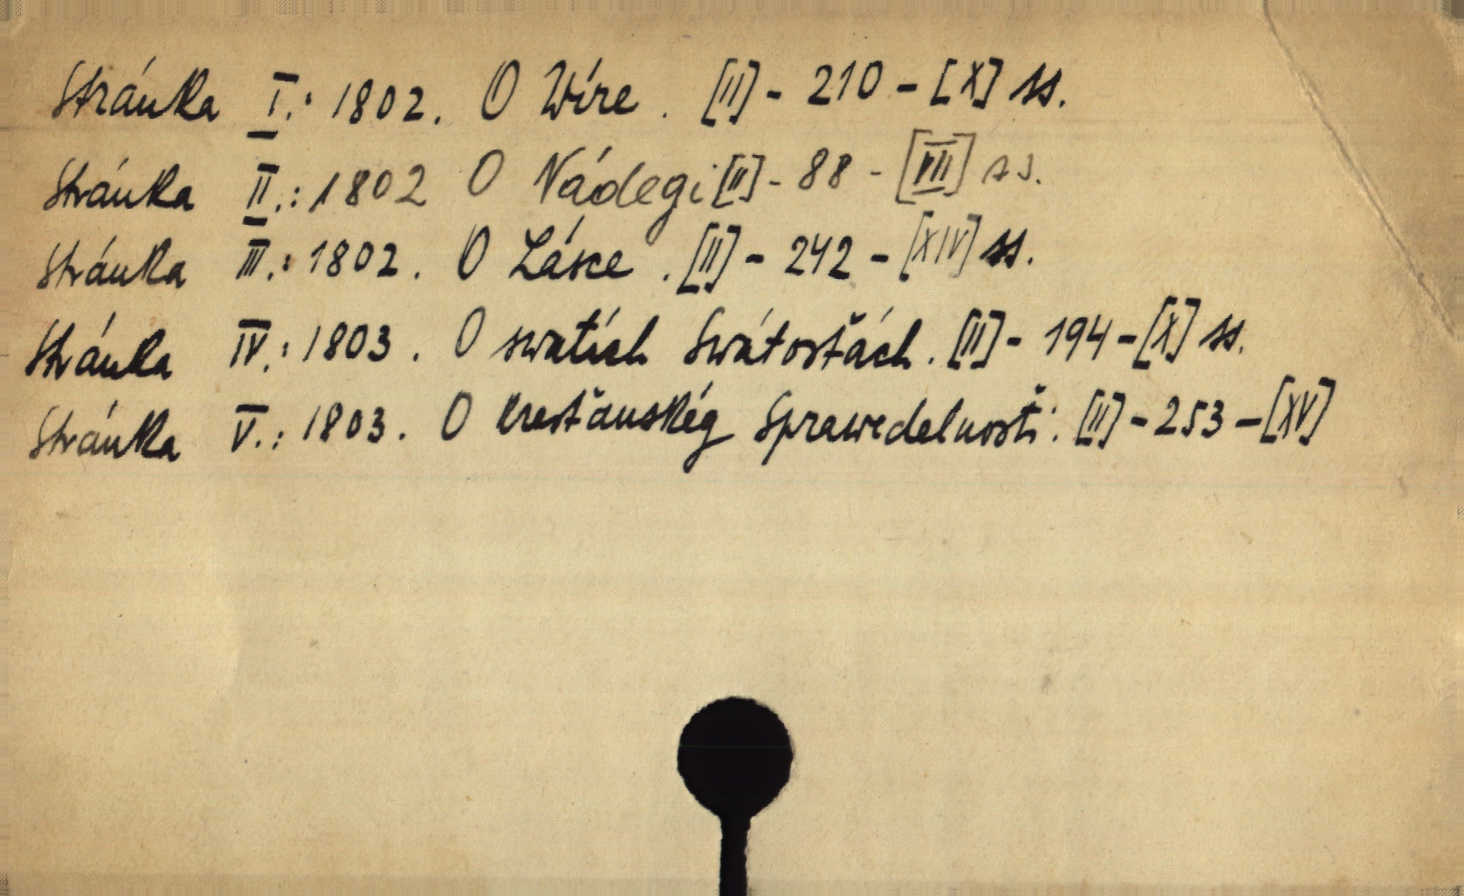 Stránka I.: 1802. O Wíre. [II] - 210 - [X] ss.
Stránka II.: 1802 O Nádegi [II] - 88 - [VII] ss.
Stránka III.: 1802. O Lásce. [II] - 242 - [XIV] ss.
Stránka IV.: 1803. O swatích Swátosťách. [II] - 194 - [X] ss.
Stránka V.: 1803. O kresťanskég Sprawedelnosťi. [II] - 253 - [XV]